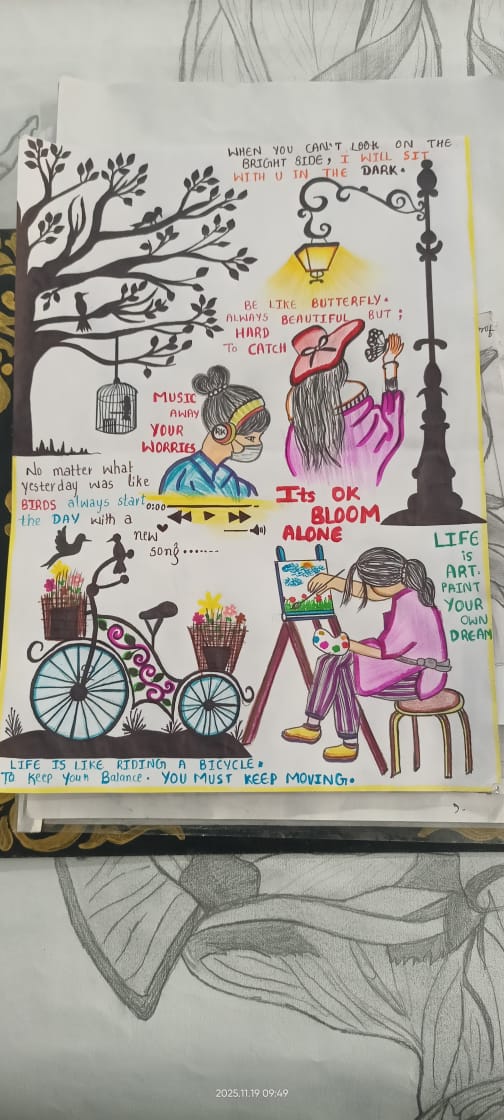 WHEN YOU CAN'T LOOK ON THE
BRIGHT SIDE, I WILL SIT
WITH U IN THE DARK.
BE LIKE BUTTERFLY.
ALWAYS BEAUTIFUL BUT;
HARD
TO CATCH
MUSIC
AWAY
YOUR
WORRIES
No matter what
yesterday was like
BIRDS always start
the DAY with a
new
song.......
0:00
Its OK
BLOOM
ALONE
LIFE
is
ART.
PAINT
YOUR
OWN
DREAM
LIFE IS LIKE RIDING A BICYCLE.
To Keep Your Balance. YOU MUST KEEP MOVING.
2025.11.19 09:49